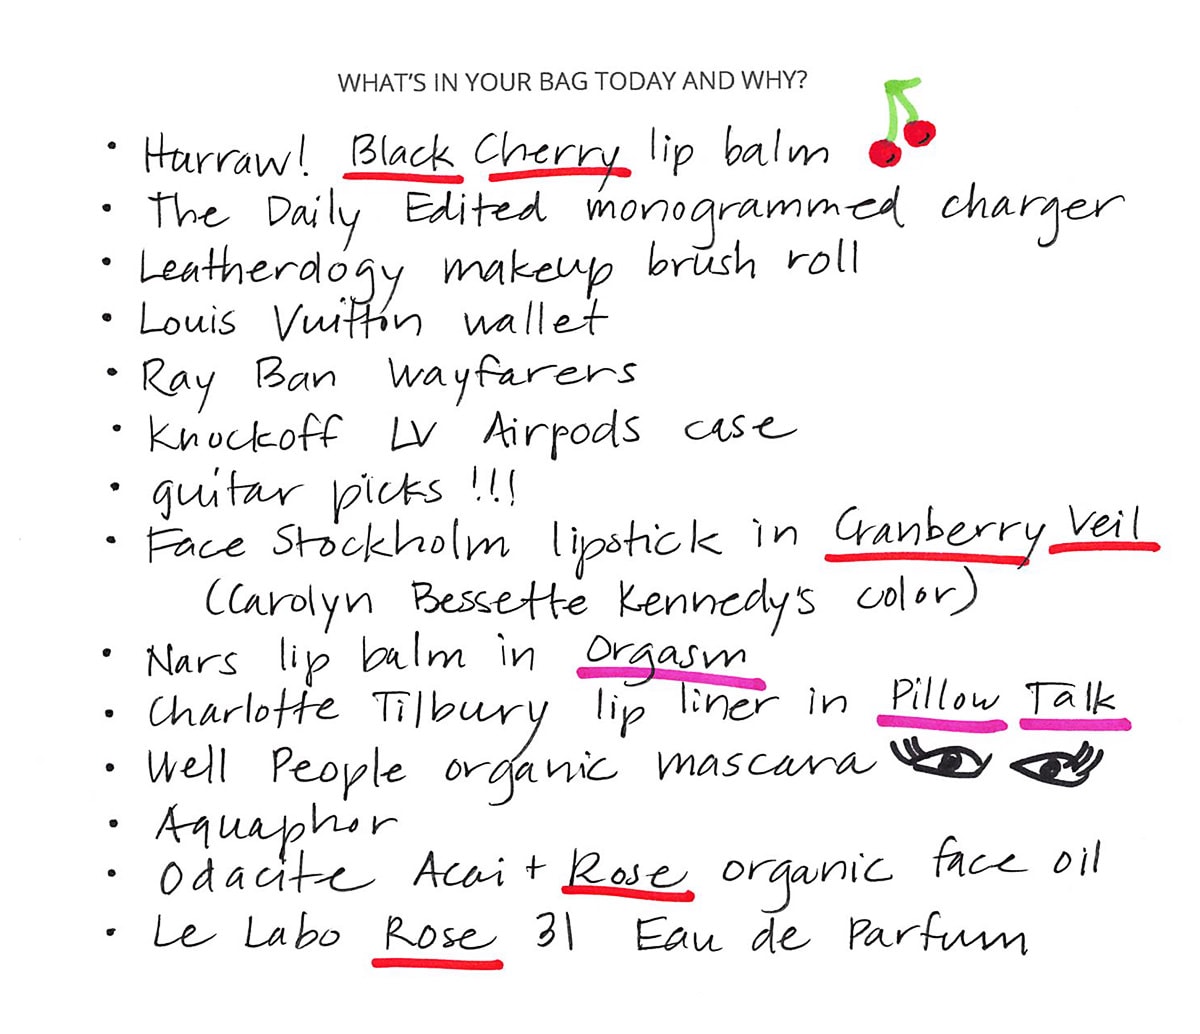 WHAT'S IN YOUR BAG TODAY AND WHY?
• Hurraw! Black Cherry lip balm
• The Daily Edited monogrammed charger
• Leatherology makeup brush roll
• Louis Vuitton wallet
• Ray Ban Wayfarers
• Knockoff LV Airpods case
• guitar picks !!!
• Face Stockholm lipstick in Cranberry Veil
(Carolyn Bessette Kennedy's color)
• Nars lip balm in Orgasm
• Charlotte Tilbury lip liner in Pillow Talk
• Well People organic mascara
• Aquaphor
• Odacite Acai + Rose organic face oil
• Le Labo Rose 31 Eau de Parfum